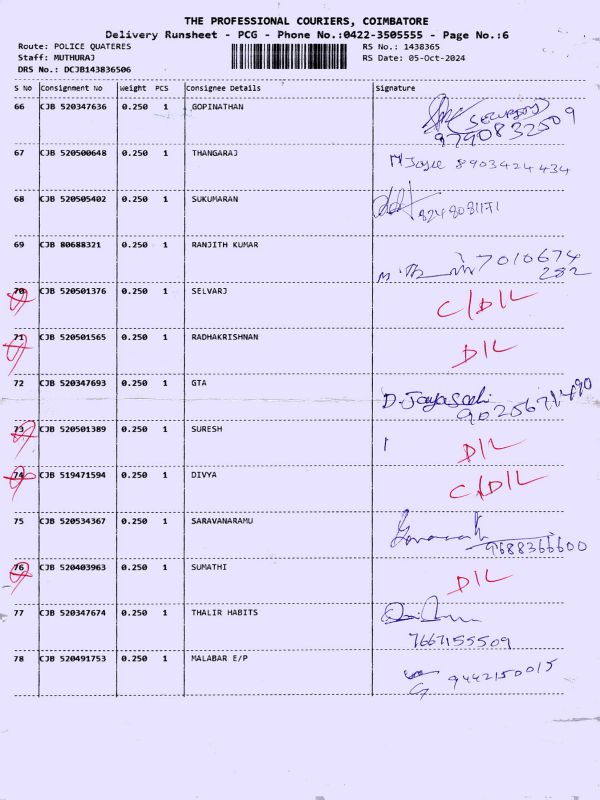 THE PROFESSIONAL COURIERS, COIMBATORE
Delivery Runsheet - PCG - Phone No.:0422-3505555 - Page No.:6
Route: POLICE QUATERES RS No.: 1438365
Staff: MUTHURAJ RS Date: 05-Oct-2024
DRS No.: DCJB143836506
S No Consignment No Weight PCS Consignee Details Signature
66 CJB 520347636 0.250 1 GOPINATHAN (SECURITY)
9790832509
67 CJB 520500648 0.250 1 THANGARAJ 8903424434
68 CJB 520505402 0.250 1 SUKUMARAN 8248081171
69 CJB 80688321 0.250 1 RANJITH KUMAR 7010674
282
70 CJB 520501376 0.250 1 SELVARJ C/D/L
71 CJB 520501565 0.250 1 RADHAKRISHNAN D/L
72 CJB 520347693 0.250 1 GTA
73 CJB 520501389 0.250 1 SURESH D/L
74 CJB 519471594 0.250 1 DIVYA C/D/L
75 CJB 520534367 0.250 1 SARAVANARAMU
9688366600
76 CJB 520403963 0.250 1 SUMATHI D/L
77 CJB 520347674 0.250 1 THALIR HABITS
7667155509
78 CJB 520491753 0.250 1 MALABAR E/P 9442150015